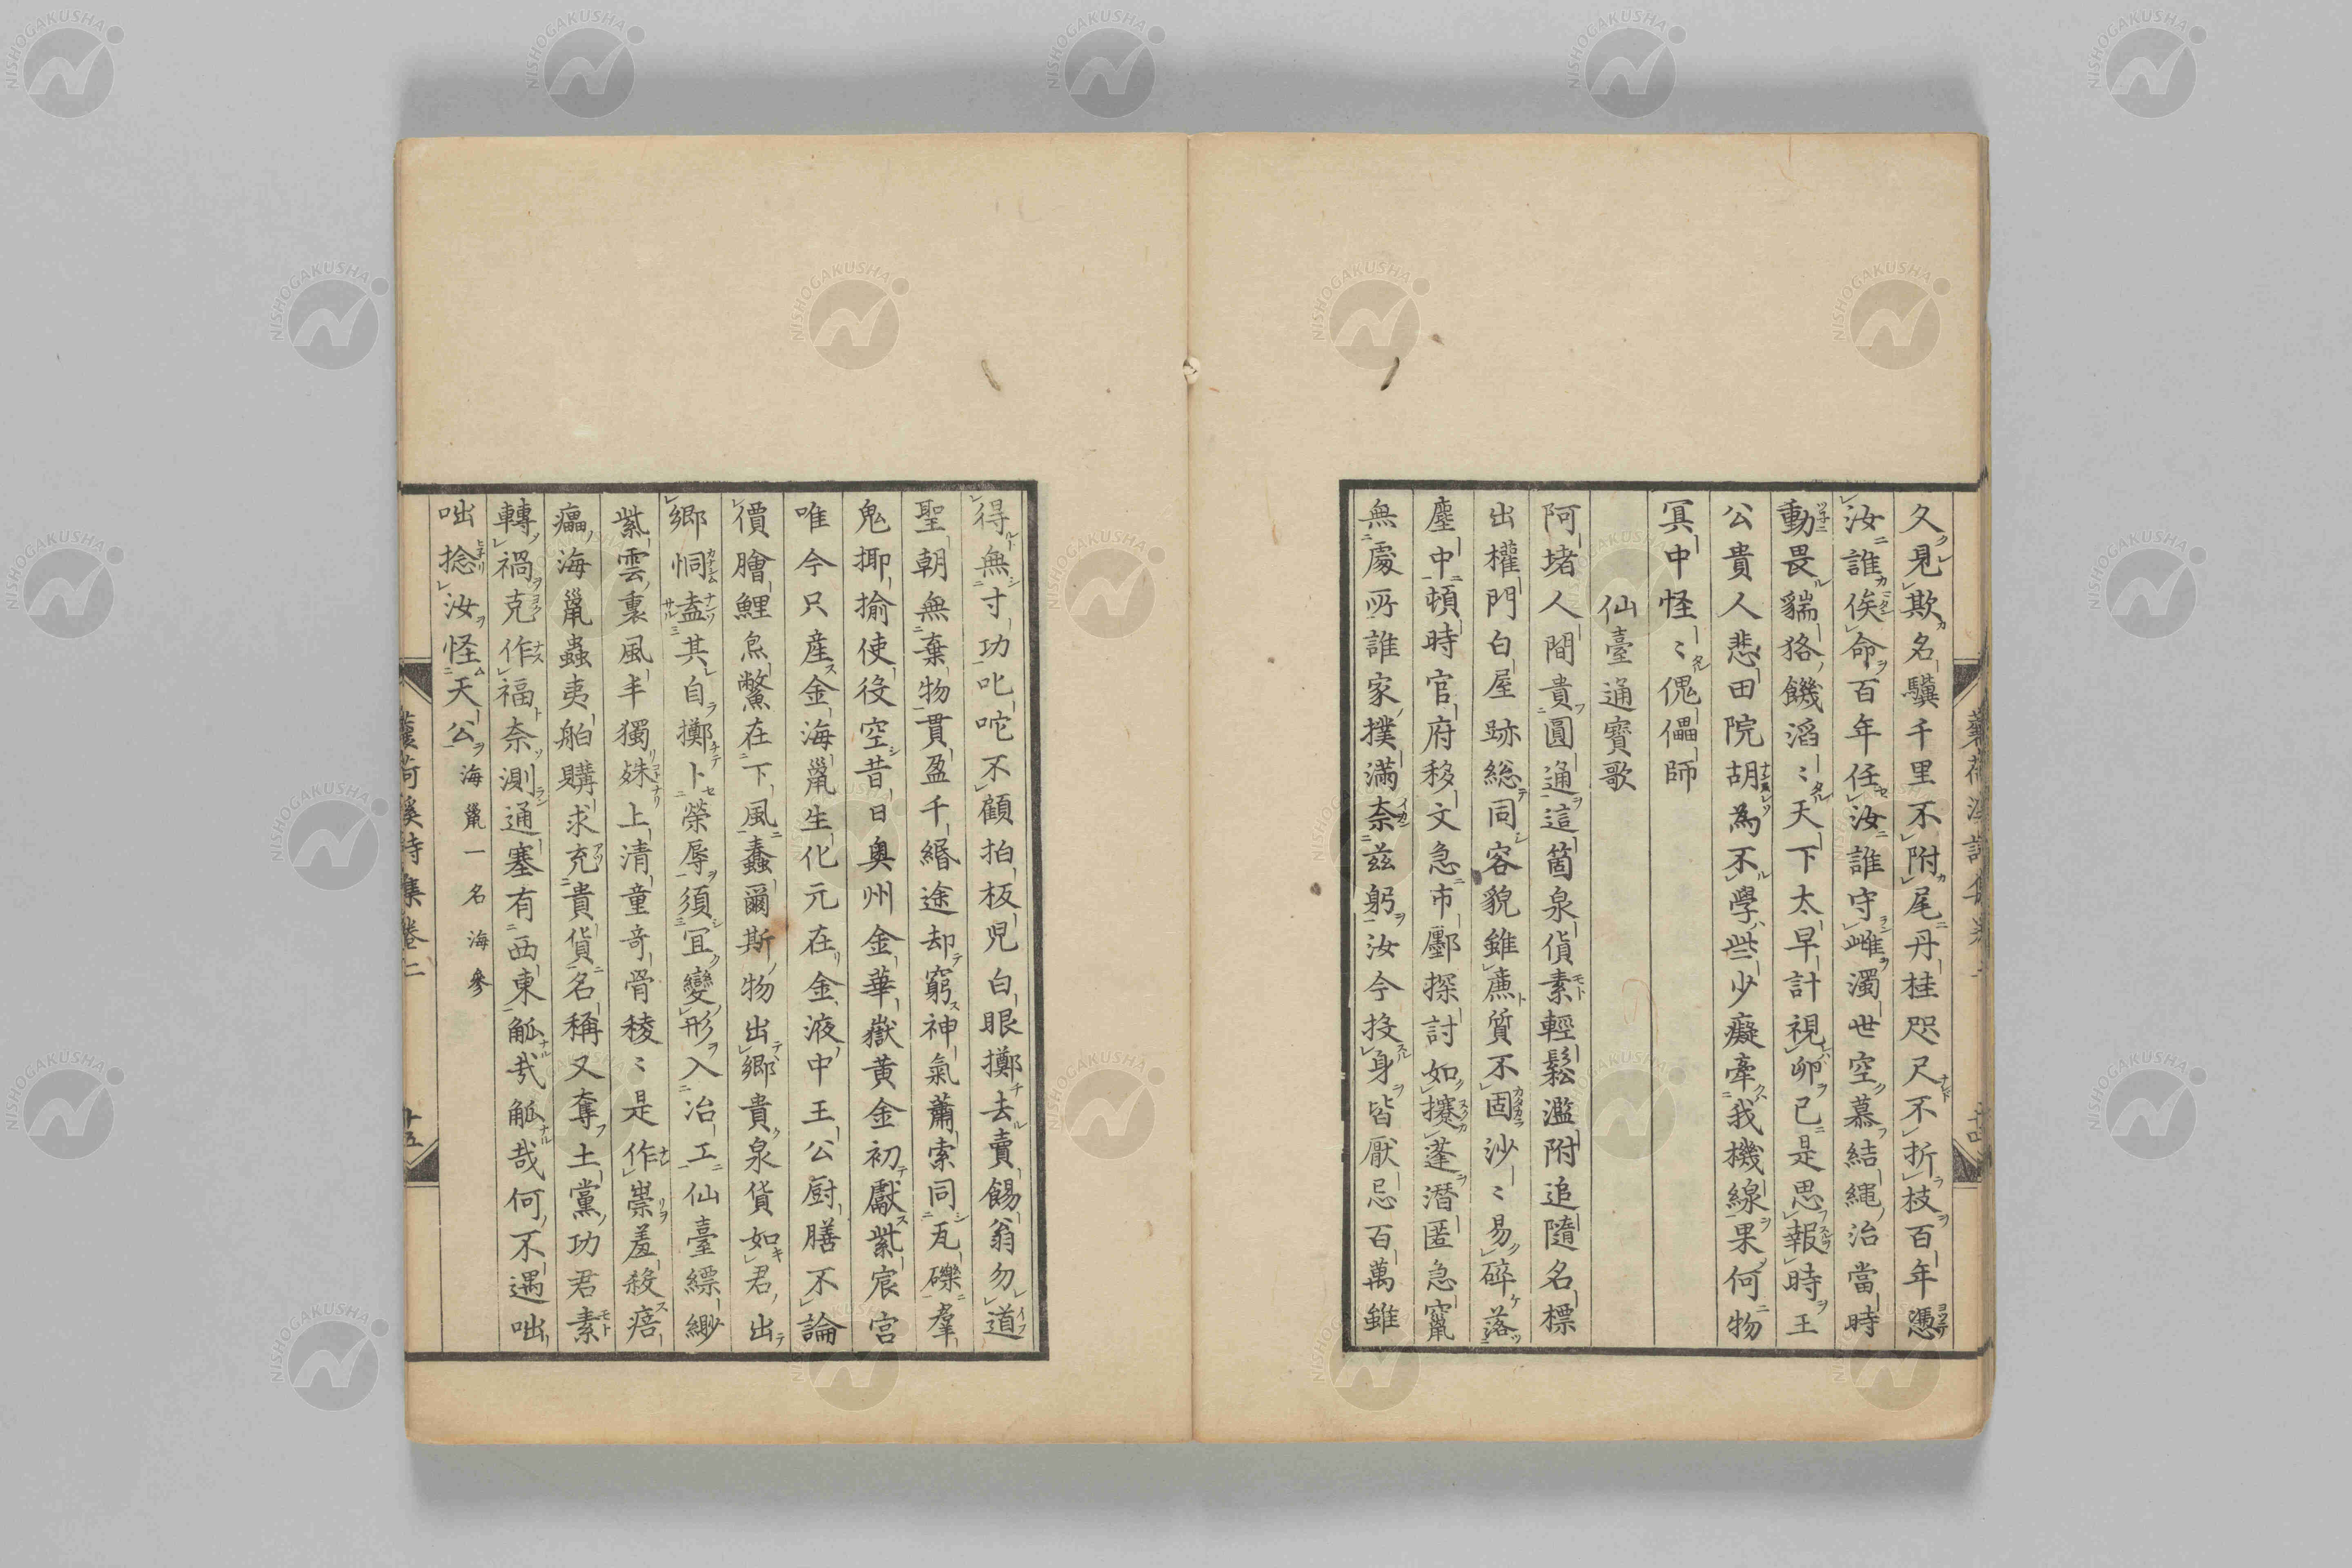 久見欺名驥千里不附尾丹桂咫尺不折枝百年憑
汝誰俟命百年任汝誰守雌濁世空慕結繩治當時
動畏貒狢饑滔〻天下太早計視卵已是思報時王
公貴人悲田院胡為不學些少癡牽我機線果何物
冥中怪〻傀儡師
仙臺通寳歌
阿堵人間貴圓通這箇泉貨素輕鬆濫附追隨名標
出權門白屋跡総同容貌雖麃質不固沙〻易碎落
塵中頓時官府移文急市鄽探討如攓蓬潛匿急竄
無處所誰家撲滿奈茲躬汝今投身皆厭忌百萬雖
得無寸功叱咜不顧拍板児白眼擲去賣餳翁勿道
聖朝無棄物貫盈千緡途却窮神氣蕭索同瓦礫羣
鬼揶揄使役空昔日奥州金華嶽黄金初獻紫宸宮
唯今只産金海鼠生化元在金液中王公厨膳不論
價膾鯉炰鱉在下風蠢爾斯物出郷貴泉貨如君出
郷恫盍其自擲卜榮辱須宜變形入冶工仙臺縹緲
紫雲裏風丰獨殊上清童奇骨稜〻是作祟羞殺痞
癟海鼠蟲夷舶購求充貴貨名稱又奪土黨功君素
轉禍克作福奈測通塞有西東觚哉觚哉何不遇咄
咄捻汝怪天公海鼠一名海參
詩集卷二
十五